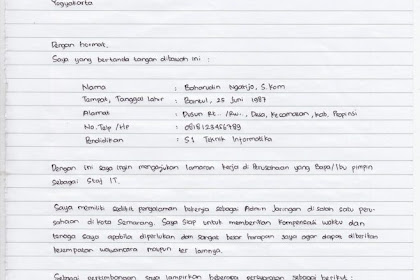 Yogyakarta
Dengan hormat,
Saya yang bertanda tangan dibawah ini :
Nama : Baharudin Ngatijo, S.Kom
Tempat, Tanggal lahir : Bantul, 25 Juni 1987
Alamat : Dusun Rt.. /Rw.., Desa, Kecamatan, Kab, Propinsi
No. Telp /Hp : 0818123456789
Pendidikan : S1 Teknik Informatika
Dengan ini saya ingin mengajukan lamaran kerja di Perusahaan yang Bapa/Ibu pimpin
sebagai Staf IT.
Saya memiliki sedikit pengalaman bekerja sebagai Admin Jaringan di salah satu peru-
sahaan di kota Semarang. Saya siap untuk memberikan kompensasi waktu dan
tenaga saya apabila diperlukan dan sangat besar harapan saya agar dapat diberikan
kesempatan wawancara maupun tes lainnya.
Sebagai pertimbangan saya lampirkan beberapa persyaratan sebagai berikut :